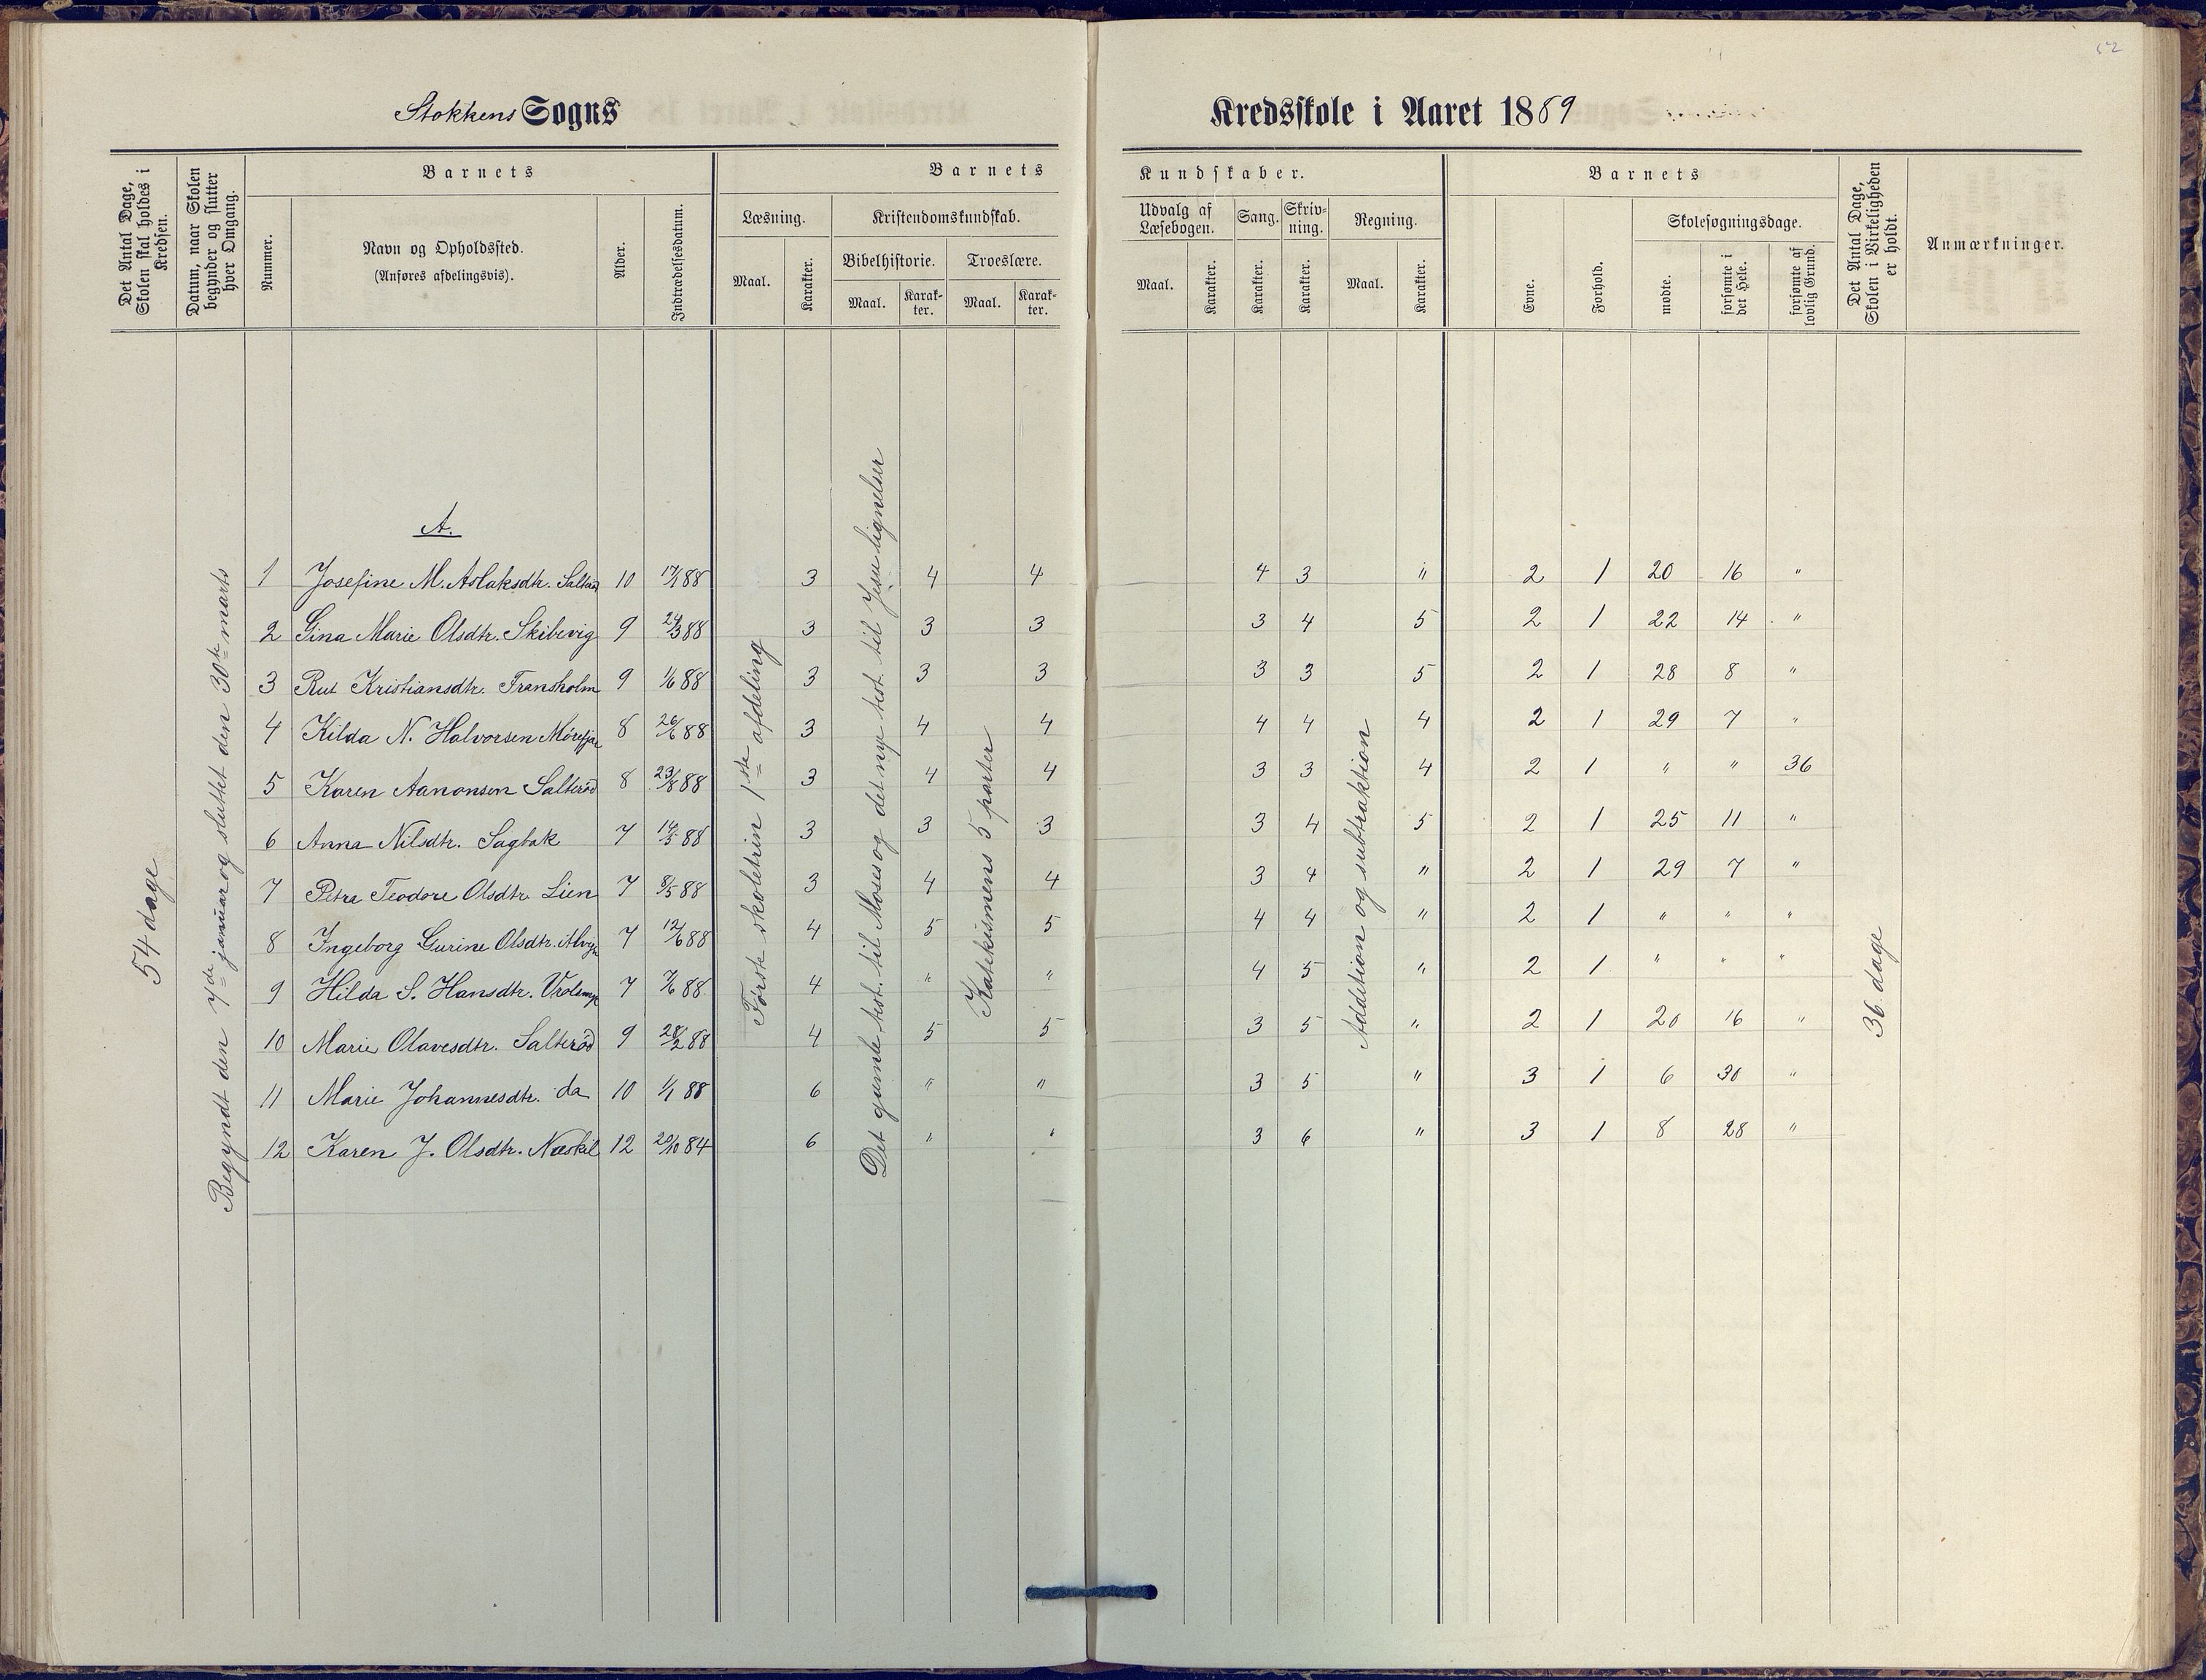 52
Stokkens Sogns Kredsskole i Aaret 1889
Det Antal Dage, Skolen skal holdes i Kredsen.
Datum, naar Skolen begynder og slutter hver Omgang.
Barnets
Nummer.
Navn og Opholdssted.
(Anføres afdelingsvis).
Alder.
Indtrædelsesdatum.
Barnets Kundskaber.
Læsning.
Maal.
Karakter.
Kristendomskundskab.
Bibelhistorie.
Maal.
Karakter.
Troeslære.
Maal.
Karakter.
Udvalg af Læsebogen.
Maal.
Karakter.
Sang.
Karakter.
Skrivning.
Karakter.
Regning.
Maal.
Karakter.
Barnets
Evne.
Forhold.
Skolesøgningsdage.
mødte.
forsømte i det Hele.
forsømte af lovlig Grund.
Det Antal Dage, Skolen i Virkeligheden er holdt.
Anmærkninger.
54 dage
Begyndt den 7de januar og sluttet den 30te marts
Første skoletrin 1ste afdeling
Det gamle test. til Moses og det nye test. til Jesu lignelser
Katekismens 5 parter
Addition og subtraktion
36 dage
A.
1 Josefine M. Aslaksdtr. 10 17/1 88 3 4 4 4 3 " 2 1 20 16 "
2 Gina Marie Olsdtr. Skibevig 9 24/3 88 3 3 3 3 4 5 2 1 22 14 "
3 Rut Kristiansdtr. Fransholm 9 1/6 88 3 3 3 3 3 5 2 1 28 8 "
4 Kilda N. Halvorsen 8 26/6 88 3 4 4 4 4 4 2 1 29 7 "
5 Karen Aanonsen Salterød 8 23/8 88 3 4 4 3 3 4 2 1 " " 36
6 Anna Nilsdtr. Sagbak 7 14/5 88 3 3 3 3 4 5 2 1 25 11 "
7 Petra Teodore Olsdtr. Lien 7 8/5 88 3 4 4 3 4 " 2 1 29 7 "
8 Ingeborg Gurine Olsdtr. 7 12/6 88 4 5 5 4 4 " 2 1 " " "
9 Hilda S. Hansdtr. 7 7/6 88 4 " " 4 5 " 2 1 " " "
10 Marie Olavesdtr. Salterød 9 28/2 88 4 5 5 3 5 " 2 1 20 16 "
11 Marie Johannesdtr. da 10 1/1 88 6 " " 3 5 " 3 1 6 30 "
12 Karen J. Olsdtr. Næskil 12 20/10 84 6 " " 3 6 " 3 1 8 28 "